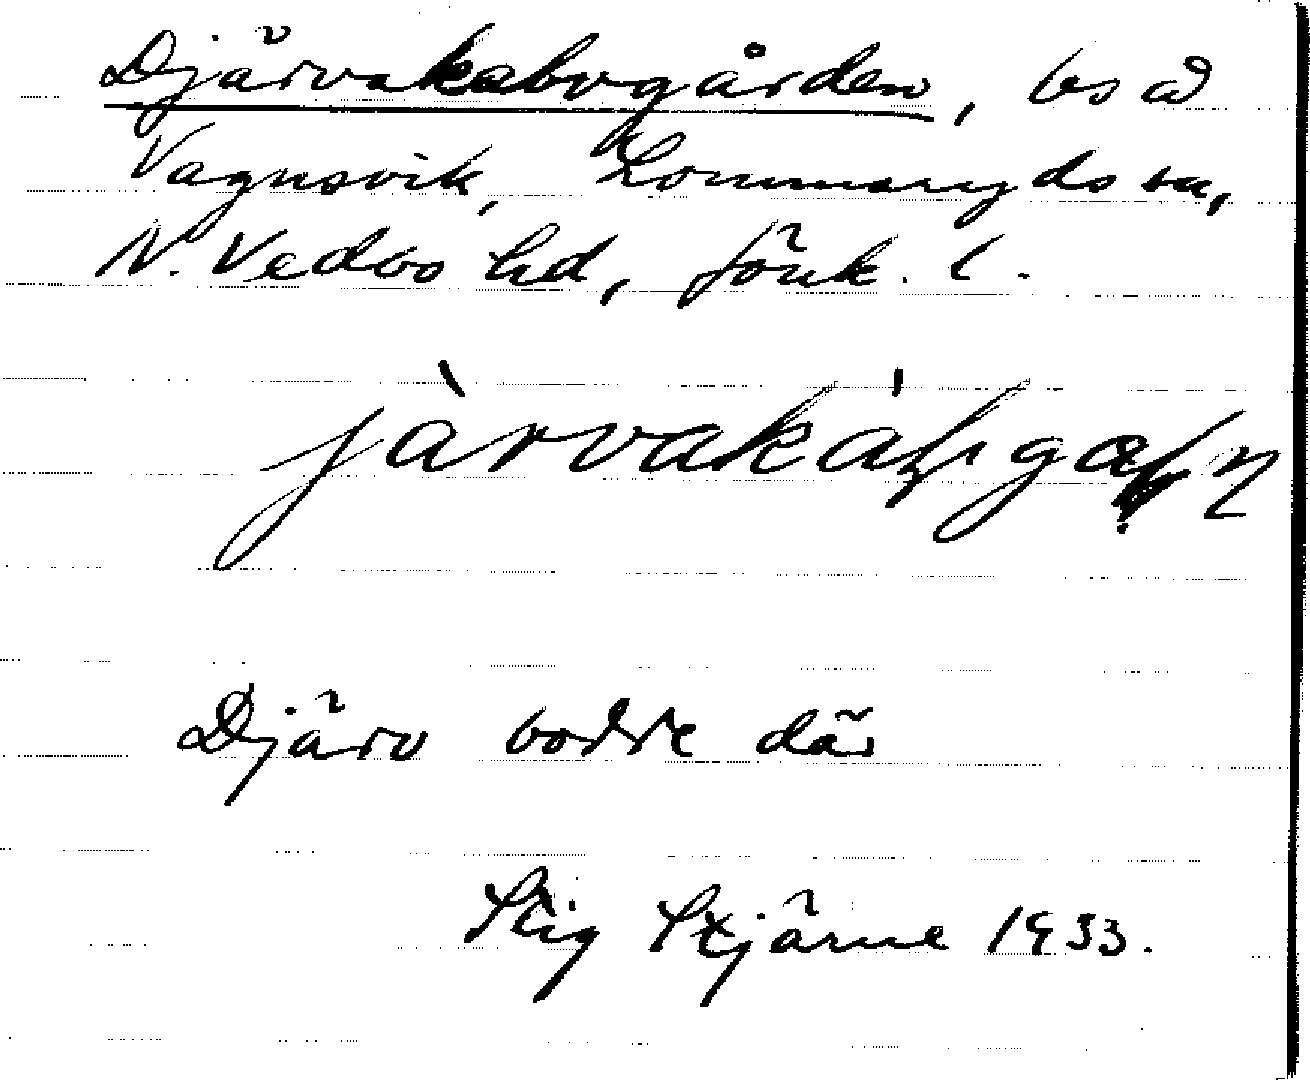 Djärvakabogården, bs å
Vagnsvik, Lommaryds sn,
N. Vedbo hd, Jönk. l.
Djärv bodde där
Stig Stjärne 1933.